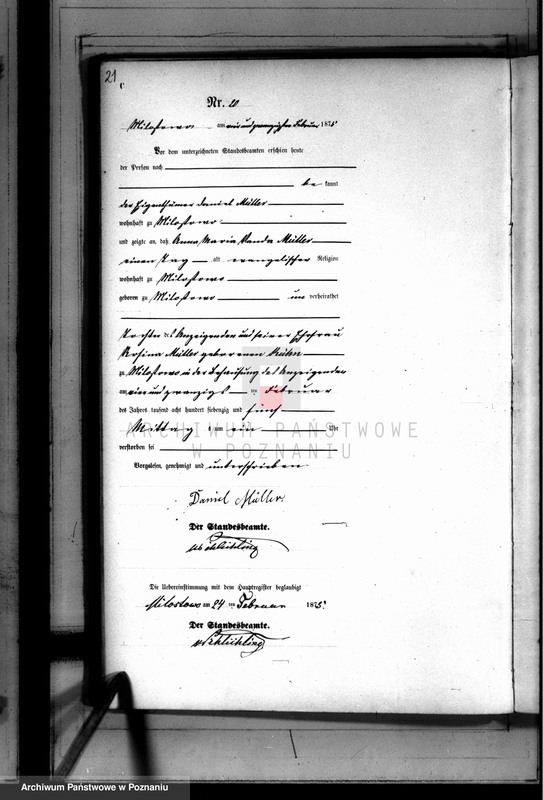 21
C
Nr. 20
Milostowo am vier und zwanzigsten Februar 1875
Vor dem unterzeichneten Standesbeamten erschien heute
der Person nach
be kannt
der Eigenthümer Daniel Müller
wohnhaft zu Milostowo
und zeigte an, daß Anna Maria Wanda Müller
einen Tag alt evangelischer Religion
wohnhaft zu Milostowo
geboren zu Milostowo un verheirathet
Tochter des Anzeigenden und seiner Ehefrau
Rosina Müller geborenen Kühn
zu Milostowo in der Behausung des Anzeigenden
am vier und zwanzigs ten Februar
des Jahres tausend acht hundert siebenzig und fünf
Mittag s um ein Uhr
verstorben sei
Vorgelesen, genehmigt und unterschrieben
Daniel Müller.
Der Standesbeamte.
Die Uebereinstimmung mit dem Hauptregister beglaubigt
Milostowo am 24 ten Februar 1875.
Der Standesbeamte.
ARCHIWUM PAŃSTWOWE
W POZNANIU
Archiwum Państwowe w Poznaniu